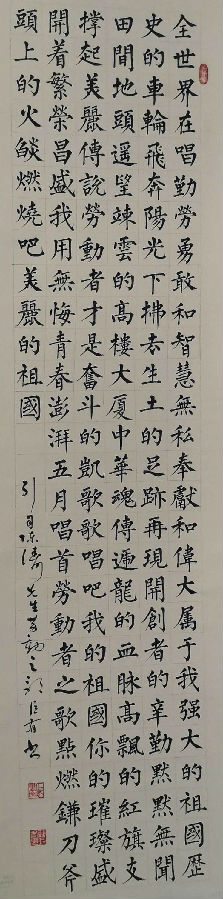 全世界在唱勤勞勇敢和智慧無私奉獻和偉大属于我强大的祖國歷
史的車輪飛奔陽光下拂去生土的足跡再現開創者的辛勤默默無聞
田間地頭遥望竦雲的高樓大厦中華魂傳遞龍的血脉高飄的紅旗支
撐起美麗傳説勞動者才是奮斗的凱歌歌唱吧我的祖國你的璀璨盛
開着繁榮昌盛我用無悔青春澎湃五月唱首勞動者之歌點燃鎌刀斧
頭上的火燄燃燒吧美麗的祖國
引
先生